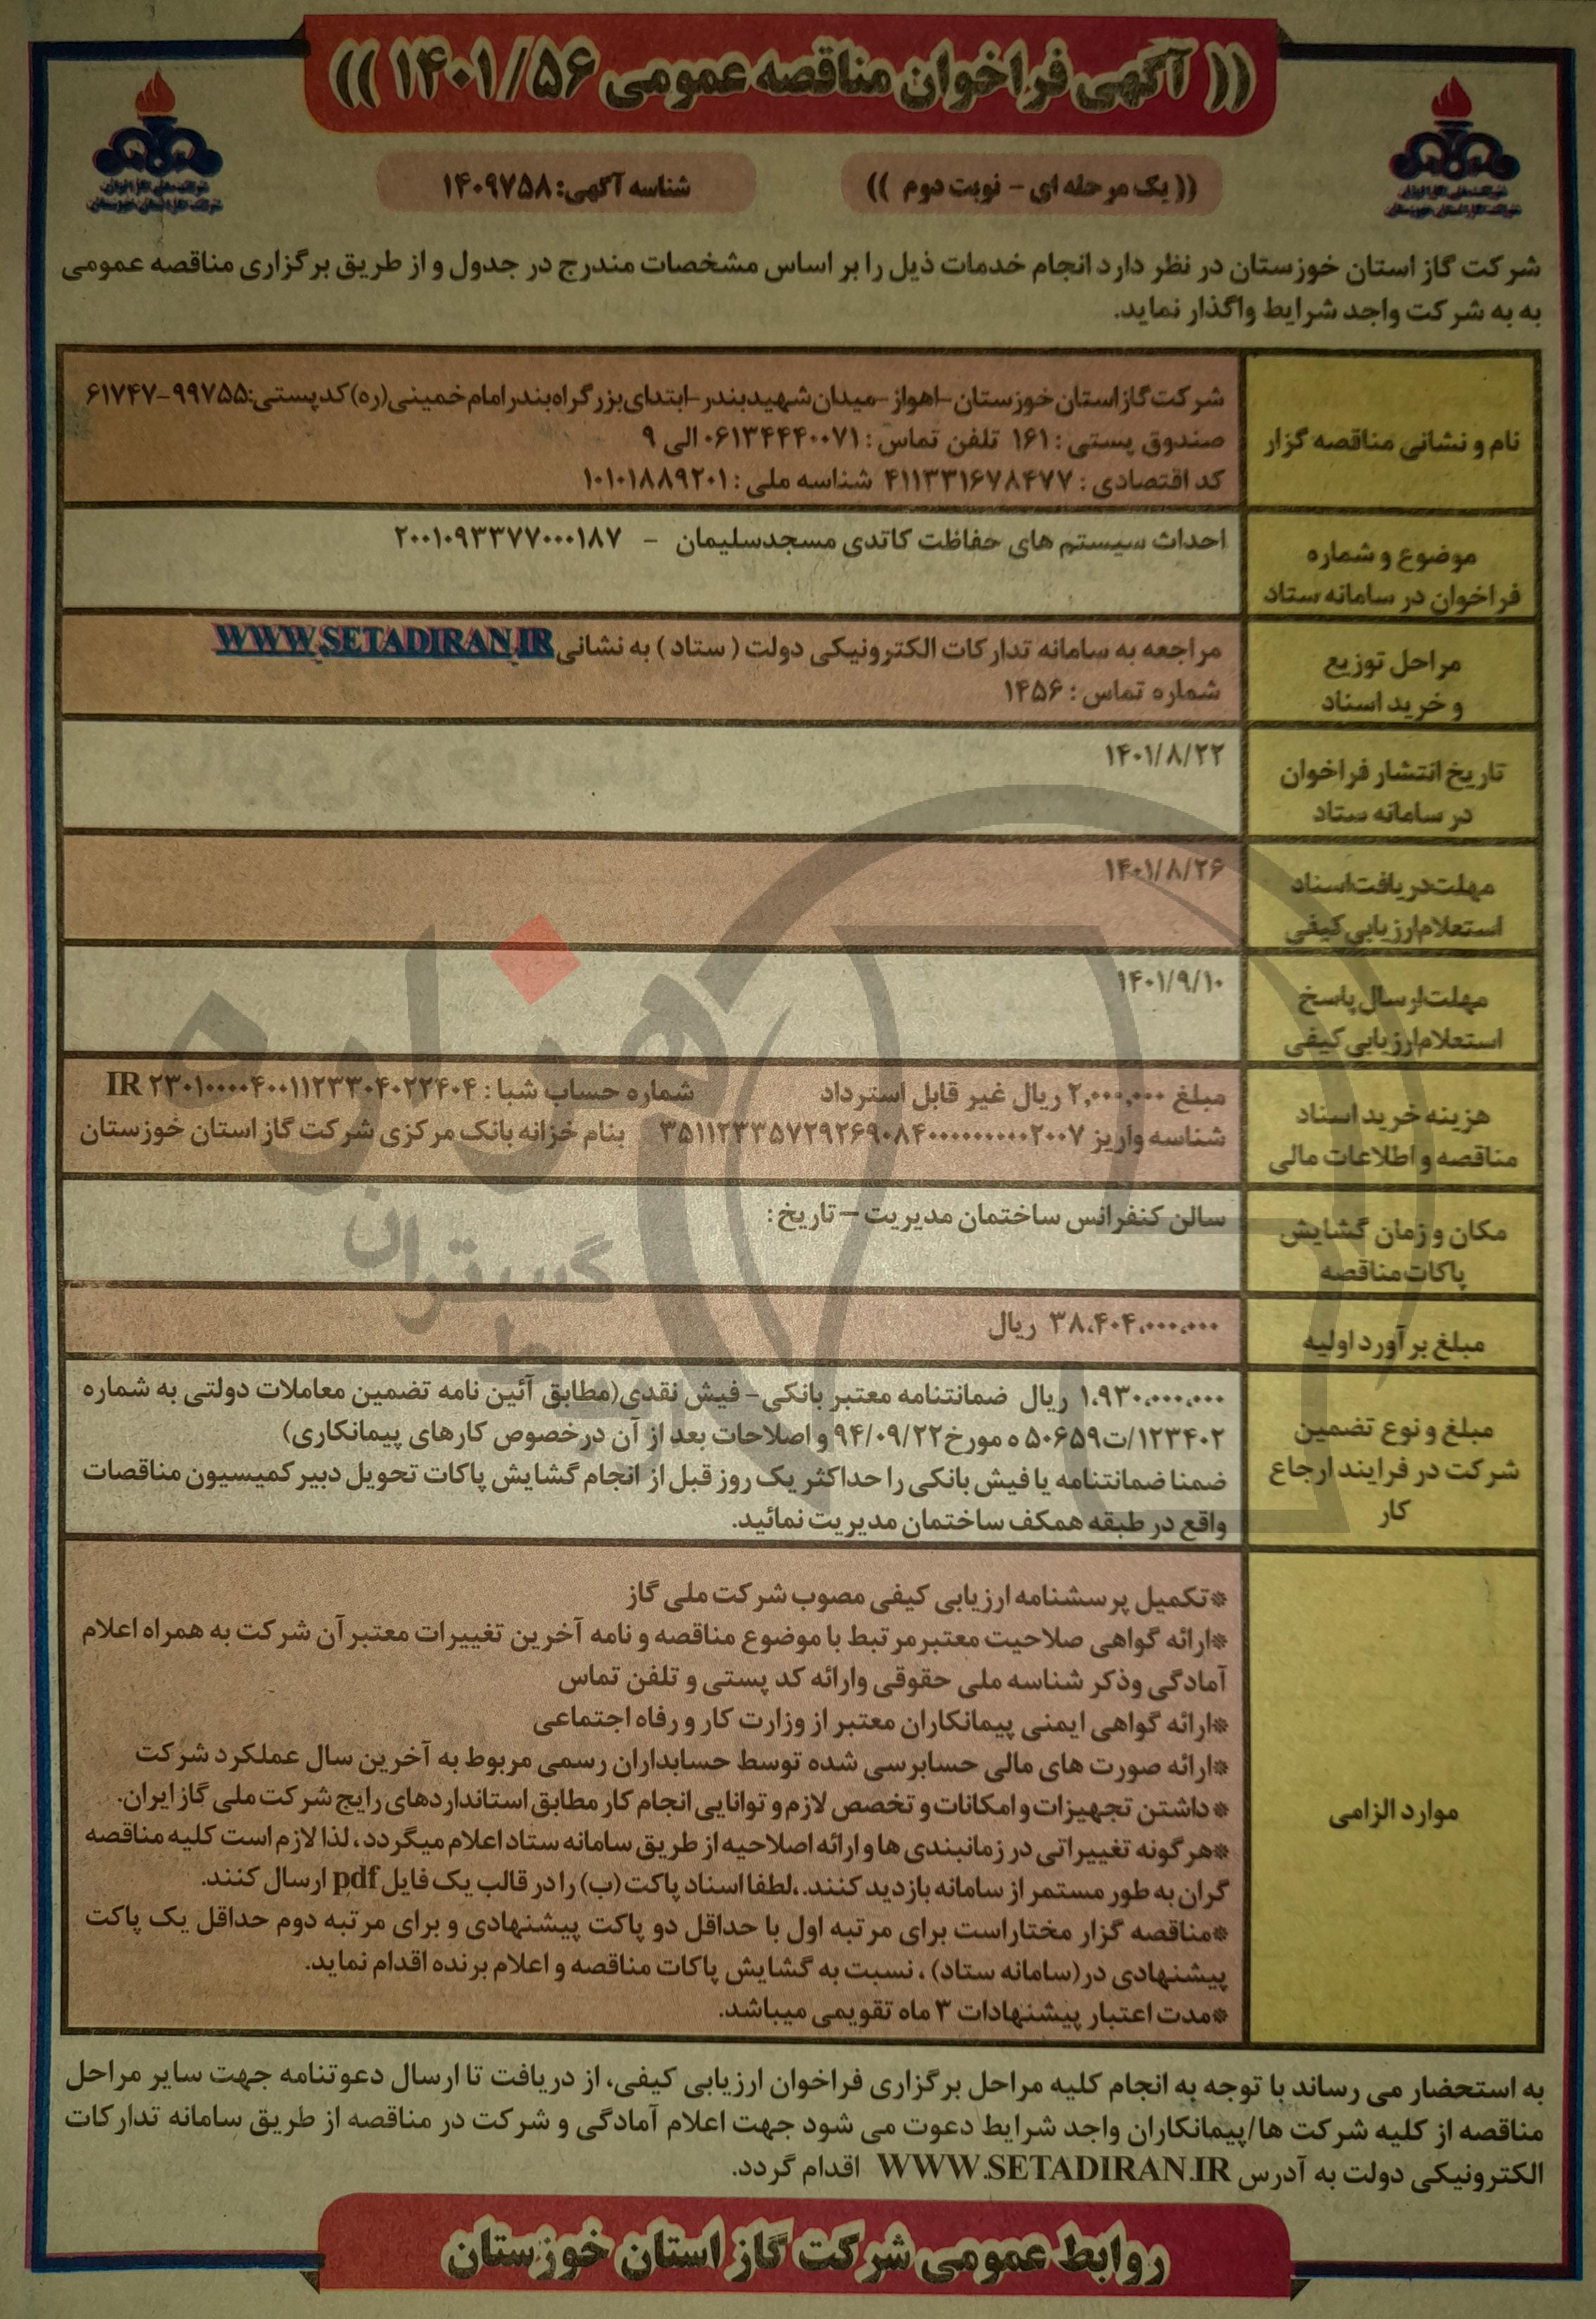 (( آگهی فراخوان مناقصه عمومی ۱۴۰۱/۵۶ ))
شرکت ملی گاز ایران
شرکت گاز استان خوزستان
شرکت ملی گاز ایران
شرکت گاز استان خوزستان
(( یک مرحله ای - نوبت دوم ))
شناسه آگهی: ۱۴۰۹۷۵۸
شرکت گاز استان خوزستان در نظر دارد انجام خدمات ذیل را بر اساس مشخصات مندرج در جدول و از طریق برگزاری مناقصه عمومی
به به شرکت واجد شرایط واگذار نماید.
نام و نشانی مناقصه گزار
شرکت گاز استان خوزستان-اهواز-میدان شهید بندر-ابتدای بزرگراه بندر امام خمینی(ره)کد پستی:۹۹۷۵۵-۶۱۷۴۷
صندوق پستی : ۱۶۱ تلفن تماس : ۰۶۱۳۴۴۴۰۰۷۱ الی ۹
کد اقتصادی : ۴۱۱۳۳۱۶۷۸۴۷۷ شناسه ملی : ۱۰۱۰۱۸۸۹۲۰۱
موضوع و شماره
فراخوان در سامانه ستاد
احداث سیستم های حفاظت کاتدی مسجدسلیمان - ۲۰۰۱۰۹۳۳۷۷۰۰۰۱۸۷
مراحل توزیع
و خرید اسناد
مراجعه به سامانه تدارکات الکترونیکی دولت ( ستاد ) به نشانی WWW.SETADIRAN.IR
شماره تماس : ۱۴۵۶
تاریخ انتشار فراخوان
در سامانه ستاد
۱۴۰۱/۸/۲۲
مهلت دریافت اسناد
استعلام ارزیابی کیفی
۱۴۰۱/۸/۲۶
مهلت ارسال پاسخ
استعلام ارزیابی کیفی
۱۴۰۱/۹/۱۰
هزینه خرید اسناد
مناقصه و اطلاعات مالی
مبلغ ۲,۰۰۰,۰۰۰ ریال غیر قابل استرداد شماره حساب شبا : IR ۲۳۰۱۰۰۰۰۴۰۰۱۱۲۳۳۰۴۰۲۲۴۰۴
شناسه واریز ۳۵۱۱۲۳۳۵۷۲۹۲۶۹۰۸۴۰۰۰۰۰۰۰۰۰۰۲۰۰۷ بنام خزانه بانک مرکزی شرکت گاز استان خوزستان
مکان و زمان گشایش
پاکات مناقصه
سالن کنفرانس ساختمان مدیریت – تاریخ :
مبلغ برآورد اولیه
۳۸،۴۰۴،۰۰۰،۰۰۰ ریال
مبلغ و نوع تضمین
شرکت در فرایند ارجاع
کار
۱،۹۳۰،۰۰۰،۰۰۰ ریال ضمانتنامه معتبر بانکی- فیش نقدی(مطابق آئین نامه تضمین معاملات دولتی به شماره
۱۲۳۴۰۲/ت۵۰۶۵۹ ه مورخ ۹۴/۰۹/۲۲ و اصلاحات بعد از آن درخصوص کارهای پیمانکاری)
ضمنا ضمانتنامه یا فیش بانکی را حداکثر یک روز قبل از انجام گشایش پاکات تحویل دبیر کمیسیون مناقصات
واقع در طبقه همکف ساختمان مدیریت نمائید.
موارد الزامی
*تکمیل پرسشنامه ارزیابی کیفی مصوب شرکت ملی گاز
*ارائه گواهی صلاحیت معتبر مرتبط با موضوع مناقصه و نامه آخرین تغییرات معتبر آن شرکت به همراه اعلام
آمادگی وذکر شناسه ملی حقوقی وارائه کد پستی و تلفن تماس
*ارائه گواهی ایمنی پیمانکاران معتبر از وزارت کار و رفاه اجتماعی
*ارائه صورت های مالی حسابرسی شده توسط حسابداران رسمی مربوط به آخرین سال عملکرد شرکت
*داشتن تجهیزات و امکانات و تخصص لازم و توانایی انجام کار مطابق استانداردهای رایج شرکت ملی گاز ایران.
*هرگونه تغییراتی در زمانبندی ها و ارائه اصلاحیه از طریق سامانه ستاد اعلام میگردد، لذا لازم است کلیه مناقصه
گران به طور مستمر از سامانه بازدید کنند. ،لطفا اسناد پاکت (ب) را در قالب یک فایل pdf ارسال کنند.
*مناقصه گزار مختاراست برای مرتبه اول با حداقل دو پاکت پیشنهادی و برای مرتبه دوم حداقل یک پاکت
پیشنهادی در(سامانه ستاد) ، نسبت به گشایش پاکات مناقصه و اعلام برنده اقدام نماید.
*مدت اعتبار پیشنهادات ۳ ماه تقویمی میباشد.
به استحضار می رساند با توجه به انجام کلیه مراحل برگزاری فراخوان ارزیابی کیفی، از دریافت تا ارسال دعوتنامه جهت سایر مراحل
مناقصه از کلیه شرکت ها/پیمانکاران واجد شرایط دعوت می شود جهت اعلام آمادگی و شرکت در مناقصه از طریق سامانه تدارکات
الکترونیکی دولت به آدرس WWW.SETADIRAN.IR اقدام گردد.
روابط عمومی شرکت گاز استان خوزستان